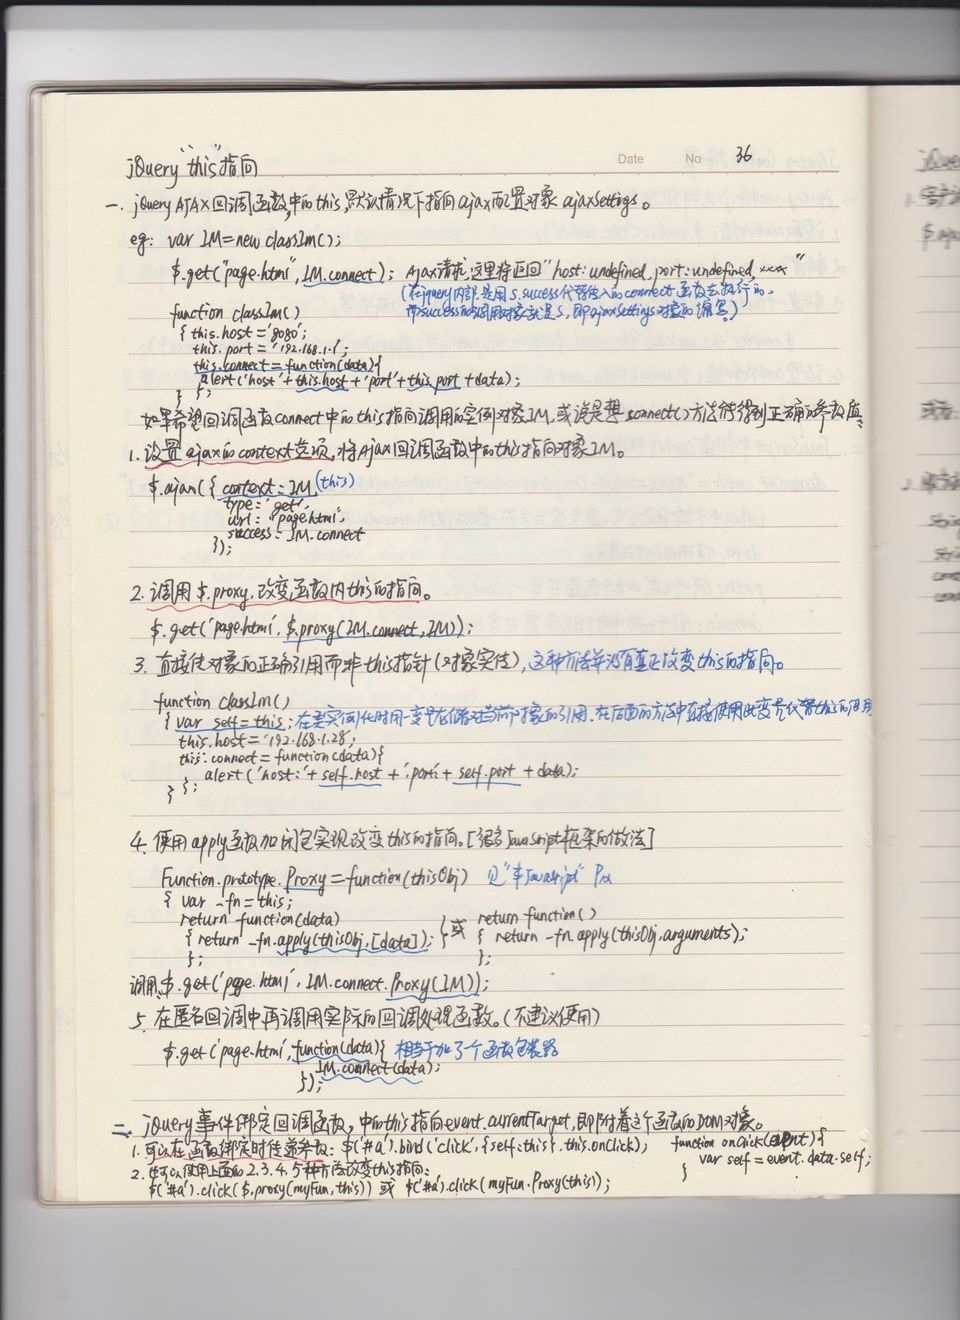 Date No 36
jQuery "this"指向
一. jQuery AJAX回调函数中的this,默认情况下指向ajax配置对象 ajaxSettings。
eg: var IM=new classIm();
$.get("page.html", IM.connect); Ajax请求,这里将返回"host:undefined,port:undefined,xxx"
(在jquery内部,是用 s.success代替传入的connect函数去执行的,
而success的调用对象就是s,即ajaxSettings对象的缩写。)
function classIm()
{ this.host='8080';
this.port='192.168.1.1';
this.connect=function(data){
alert('host'+this.host+'port'+this.port+data);
} };
如果希望回调函数connect中的this指向调用的实例对象IM,或说是想connect()方法能得到正确的参数值:
1. 设置ajax的context选项,将Ajax回调函数中的this指向对象IM。
$.ajax({ context: IM,(this)
type: 'get',
url: 'page.html',
success: IM.connect
});
2. 调用$.proxy.改变函数内this的指向。
$.get('page.html', $.proxy(IM.connect, IM));
3. 直接使对象的正确引用而非this指针(对象实体), 这种方法并没有真正改变this的指向。
function classIm()
{ var self=this; 在类实例化时用一变量存储对当前对象的引用,在后面的方法中直接使用此变量代替this的使用
this.host='192.168.1.28';
this.connect=function(data){
alert('host:'+self.host+'port:'+self.port+data);
} };
4. 使用apply函数加闭包实现改变this的指向。[很多JavaScript框架的做法]
Function.prototype.Proxy=function(thisObj) 见"《Javascript》
{ var -fn=this;
return function(data) 或 return function()
{ return -fn.apply(thisObj,[data]); { return -fn.apply(thisObj,arguments);
}; };
调用,$.get('page.html', IM.connect.Proxy(IM));
5. 在匿名回调中再调用实际的回调处理函数。(不建议使用)
$.get('page.html',function(data){ 相当于加了个函数包装器
IM.connect(data);
});
二. jQuery事件绑定回调函数,中的this指向event.currentTarget,即附着这个函数的DOM对象。
1. 可以在函数绑定时传递参数: $('#a').bind('click',{self:this},this.onClick); function onclick(event){
var self=event.data.self;
}
2. 也可以使用上面的2.3.4.5种方法改变this指向:
$('#a').click($.proxy(myFun,this)) 或 $('#a').click(myFun.Proxy(this));